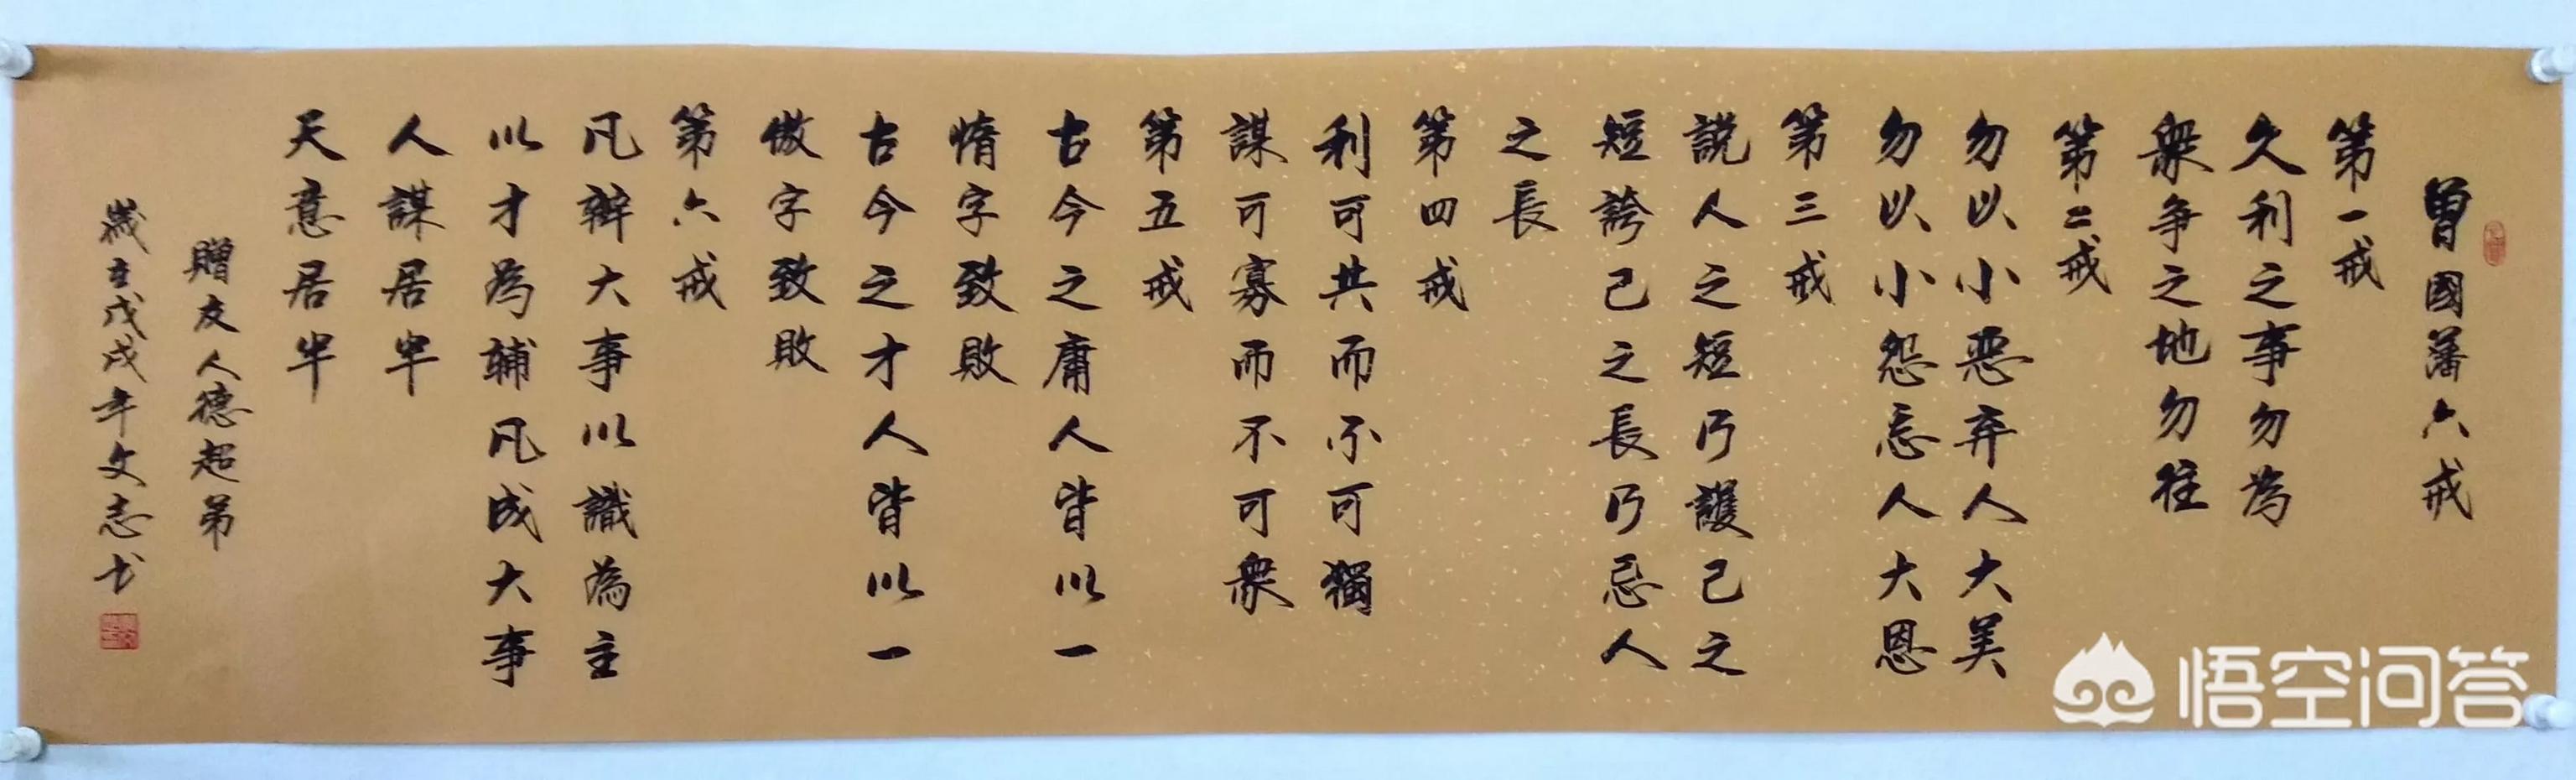 曾國藩六戒
第一戒
久利之事勿為
衆争之地勿往
第二戒
勿以小惡弃人大美
勿以小怨忘人大恩
第三戒
説人之短乃護己之
短誇己之長乃忌人
之長
第四戒
利可共而不可獨
謀可寡而不可衆
第五戒
古今之庸人皆以一
惰字致敗
古今之才人皆以一
傲字致敗
第六戒
凡辦大事以識為主
以才為輔凡成大事
人謀居半
天意居半
贈友人德超弟
歲在戊戌年文志书
悟空问答